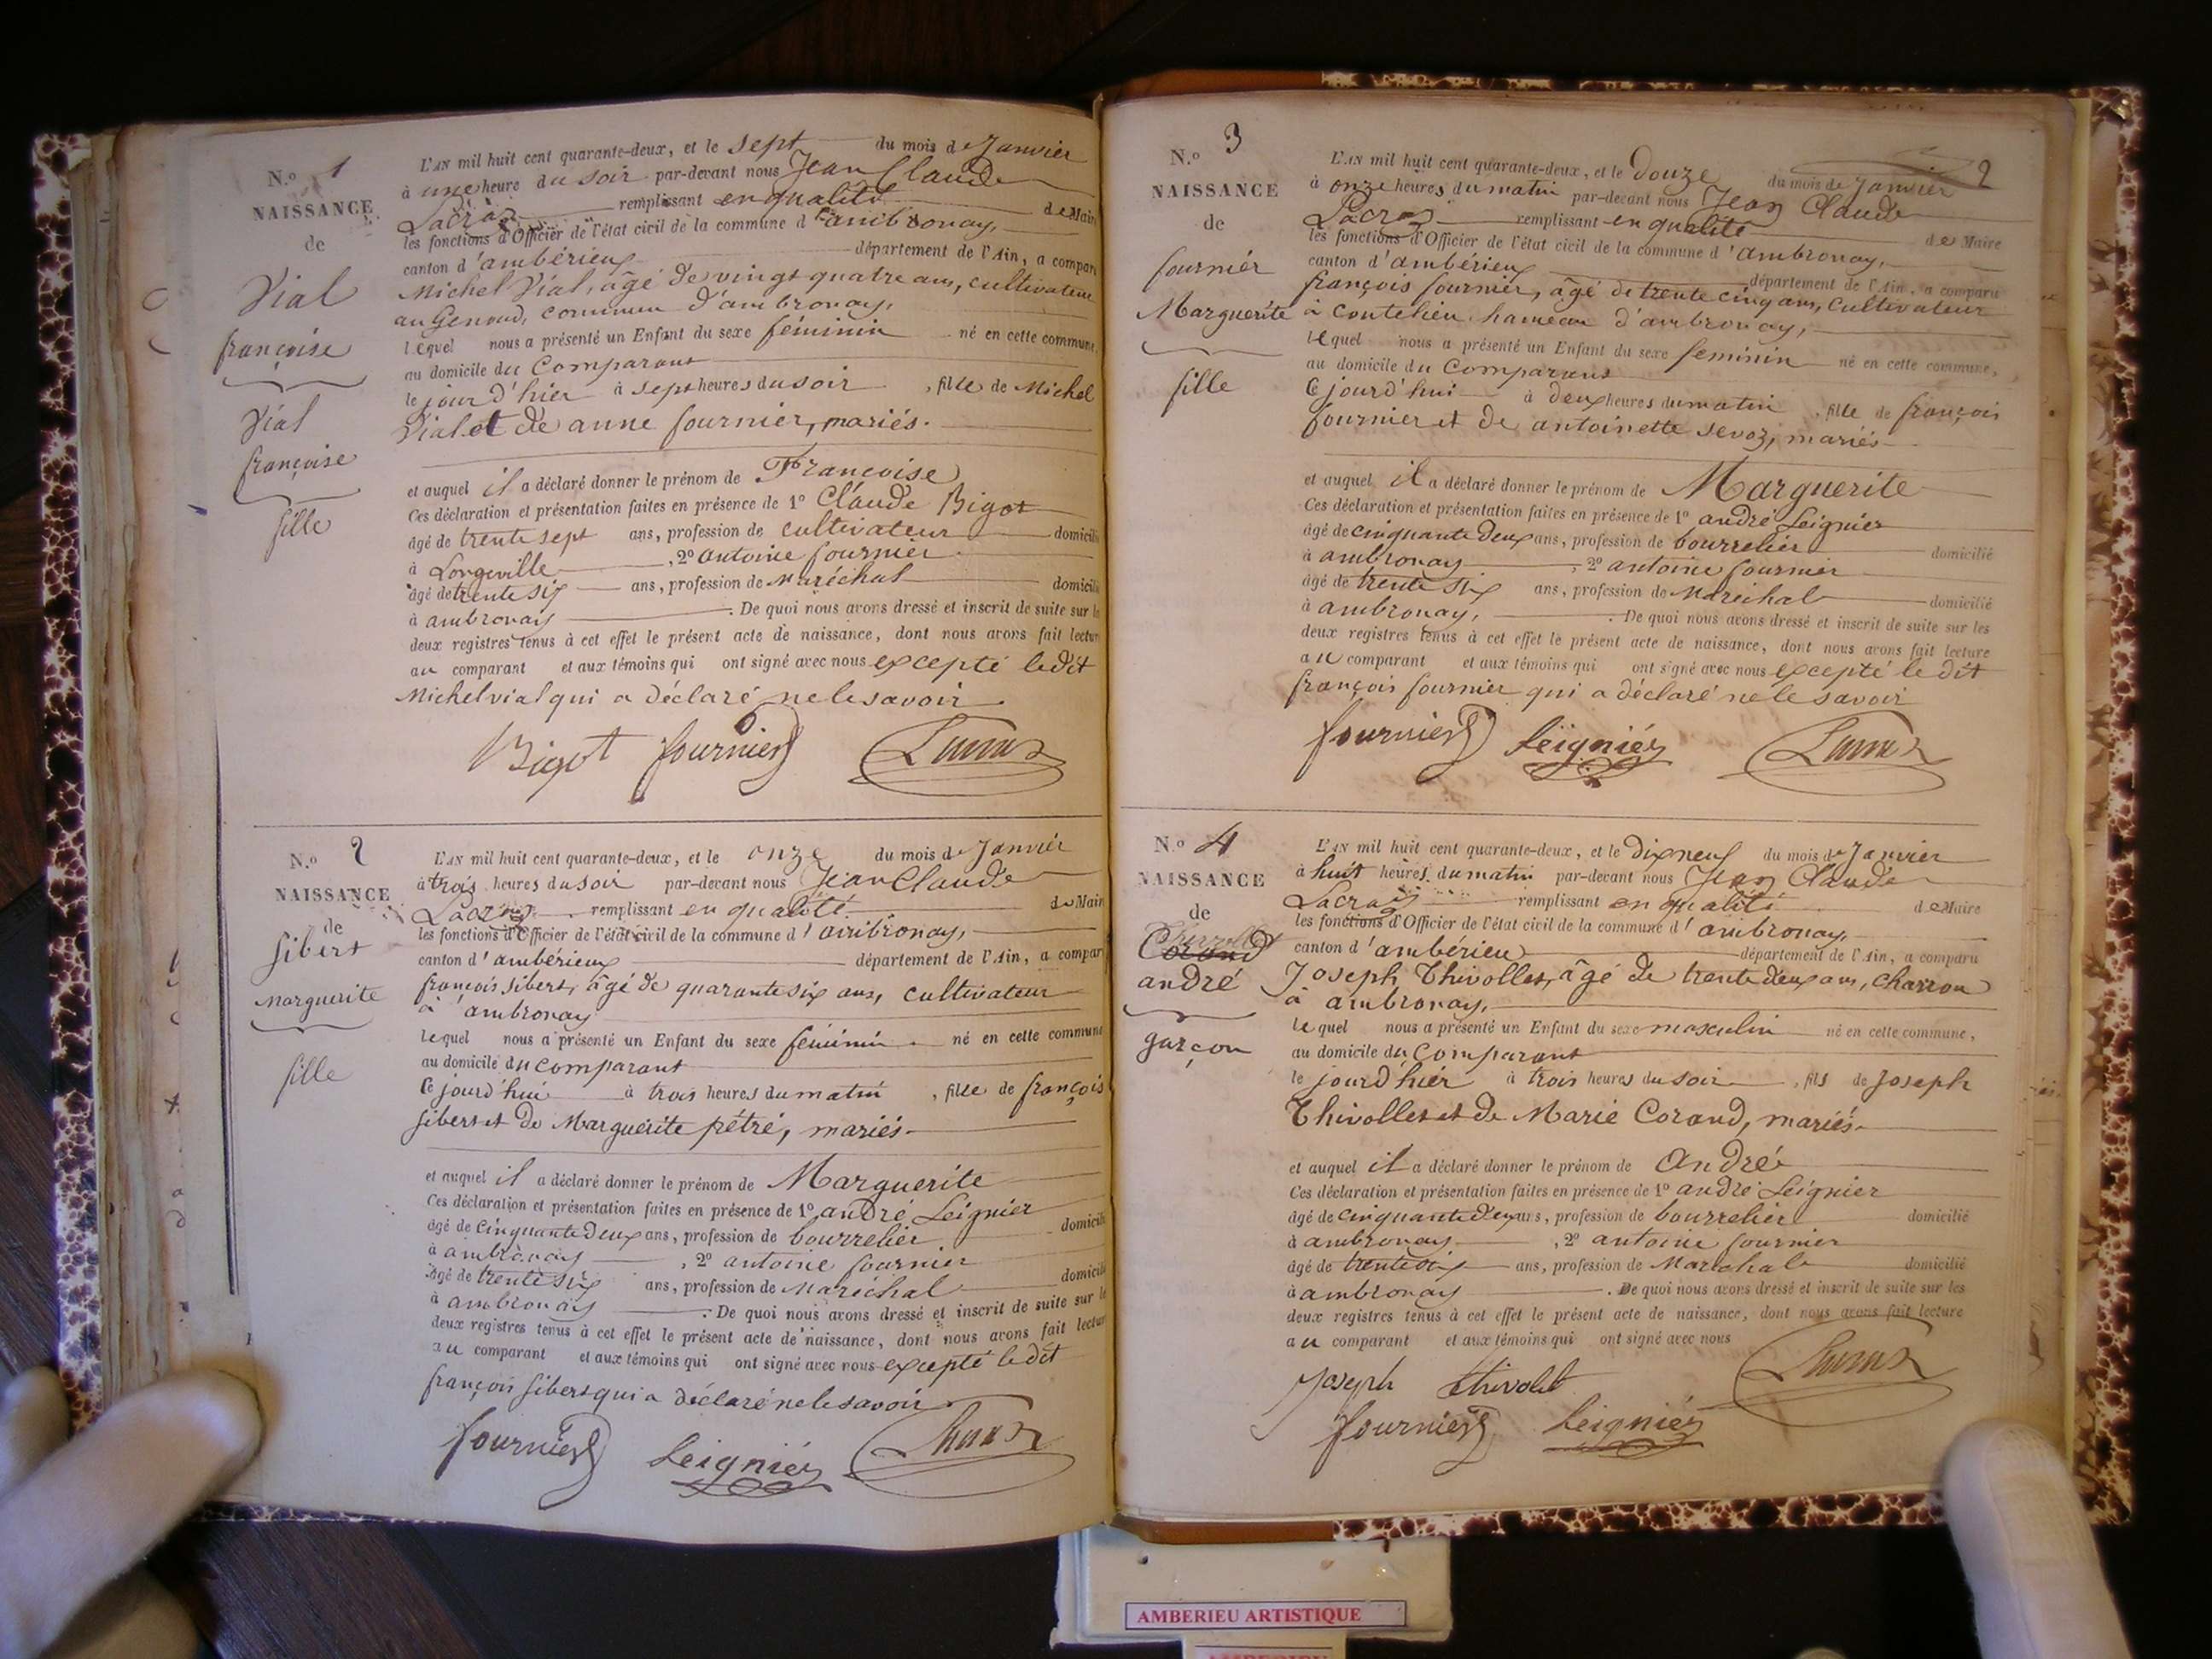 N.º 1
NAISSANCE
de
Vial
françoise
Vial
françoise
fille
L'AN mil huit cent quarante-deux, et le sept du mois de Janvier
à une heure du soir par-devant nous Jean Claude
Lacroz remplissant en qualité de Maire
les fonctions d'Officier de l'état civil de la commune d'ambronay,
canton d'ambérieux département de l'Ain, a compar
Michel Vial, âgé de vingt quatre ans, cultivateur
au Genoud, commune d'ambronay,
lequel nous a présenté un Enfant du sexe féminin né en cette commune,
au domicile du Comparant
le jour d'hier à sept heures du soir, fille de Michel
Vial et de anne fournier, mariés.
et auquel il a déclaré donner le prénom de Françoise
Ces déclaration et présentation faites en présence de 1º Claude Bigot
âgé de trente sept ans, profession de cultivateur domicilié
à Longeville, 2º antoine fournier
âgé de trente six ans, profession de Maréchal domicilié
à ambronay. De quoi nous avons dressé et inscrit de suite sur le
deux registres tenus à cet effet le présent acte de naissance, dont nous avons fait lectur
au comparant et aux témoins qui ont signé avec nous excepté le dit
Michel vial qui a déclaré ne le savoir
Bigot fournier
N.º 2
NAISSANCE
de
Sibert
Marguerite
fille
L'AN mil huit cent quarante-deux, et le onze du mois de Janvier
à trois heures du soir par-devant nous Jean Claude
Lacroz remplissant en qualité de Maire
les fonctions d'Officier de l'état civil de la commune d'ambronay,
canton d'ambérieux département de l'Ain, a compar
françois Sibert, âgé de quarante six ans, cultivateur
à ambronay
lequel nous a présenté un Enfant du sexe féminin né en cette commune
au domicile du comparant
ce jourd'hui à trois heures du matin, fille de françois
Sibert et de Marguerite pétré, mariés.
et auquel il a déclaré donner le prénom de Marguerite
Ces déclaration et présentation faites en présence de 1º andré Leignier
âgé de cinquante deux ans, profession de bourrelier domicilié
à ambronay, 2º antoine fournier
âgé de trente six ans, profession de Maréchal domicilié
à ambronay. De quoi nous avons dressé et inscrit de suite sur le
deux registres tenus à cet effet le présent acte de naissance, dont nous avons fait lectur
au comparant et aux témoins qui ont signé avec nous excepté le dit
françois Sibert qui a déclaré ne le savoir
fournier Leignier
2
N.º 3
NAISSANCE
de
fournier
Marguerite
fille
L'AN mil huit cent quarante-deux, et le douze du mois de Janvier
à onze heures du matin par-devant nous Jean Claude
Lacroz remplissant en qualité de Maire
les fonctions d'Officier de l'état civil de la commune d'ambronay,
canton d'ambérieux département de l'Ain, a comparu
françois fournier, âgé de trente cinq ans, Cultivateur
à Coutelieu hameau d'ambronay,
lequel nous a présenté un Enfant du sexe féminin né en cette commune,
au domicile du Comparant
Ce jourd'hui à deux heures du matin, fille de françois
fournier et de antoinette Sevoz, mariés
et auquel il a déclaré donner le prénom de Marguerite
Ces déclaration et présentation faites en présence de 1º andré Leignier
âgé de cinquante deux ans, profession de bourrelier domicilié
à ambronay, 2º antoine fournier
âgé de trente six ans, profession de Maréchal domicilié
à ambronay. De quoi nous avons dressé et inscrit de suite sur les
deux registres tenus à cet effet le présent acte de naissance, dont nous avons fait lecture
au comparant et aux témoins qui ont signé avec nous excepté le dit
françois fournier qui a déclaré ne le savoir
fournier Leignier
N.º 4
NAISSANCE
de
Corand
andré
garçon
L'AN mil huit cent quarante-deux, et le dix neuf du mois de Janvier
à huit heures du matin par-devant nous Jean Claude
Lacroz remplissant en qualité de Maire
les fonctions d'Officier de l'état civil de la commune d'ambronay,
canton d'ambérieux département de l'Ain, a comparu
Joseph Thivollet, âgé de trente deux ans, Charron
à ambronay,
lequel nous a présenté un Enfant du sexe masculin né en cette commune,
au domicile du Comparant
le jourd'hier à trois heures du soir, fils de Joseph
Thivollet et de Marie Corand, mariés.
et auquel il a déclaré donner le prénom de André
Ces déclaration et présentation faites en présence de 1º andré Leignier
âgé de cinquante deux ans, profession de bourrelier domicilié
à ambronay, 2º antoine fournier
âgé de trente six ans, profession de Maréchal domicilié
à ambronay. De quoi nous avons dressé et inscrit de suite sur les
deux registres tenus à cet effet le présent acte de naissance, dont nous avons fait lecture
au comparant et aux témoins qui ont signé avec nous
Joseph thivolet
fournier Leignier
AMBERIEU ARTISTIQUE